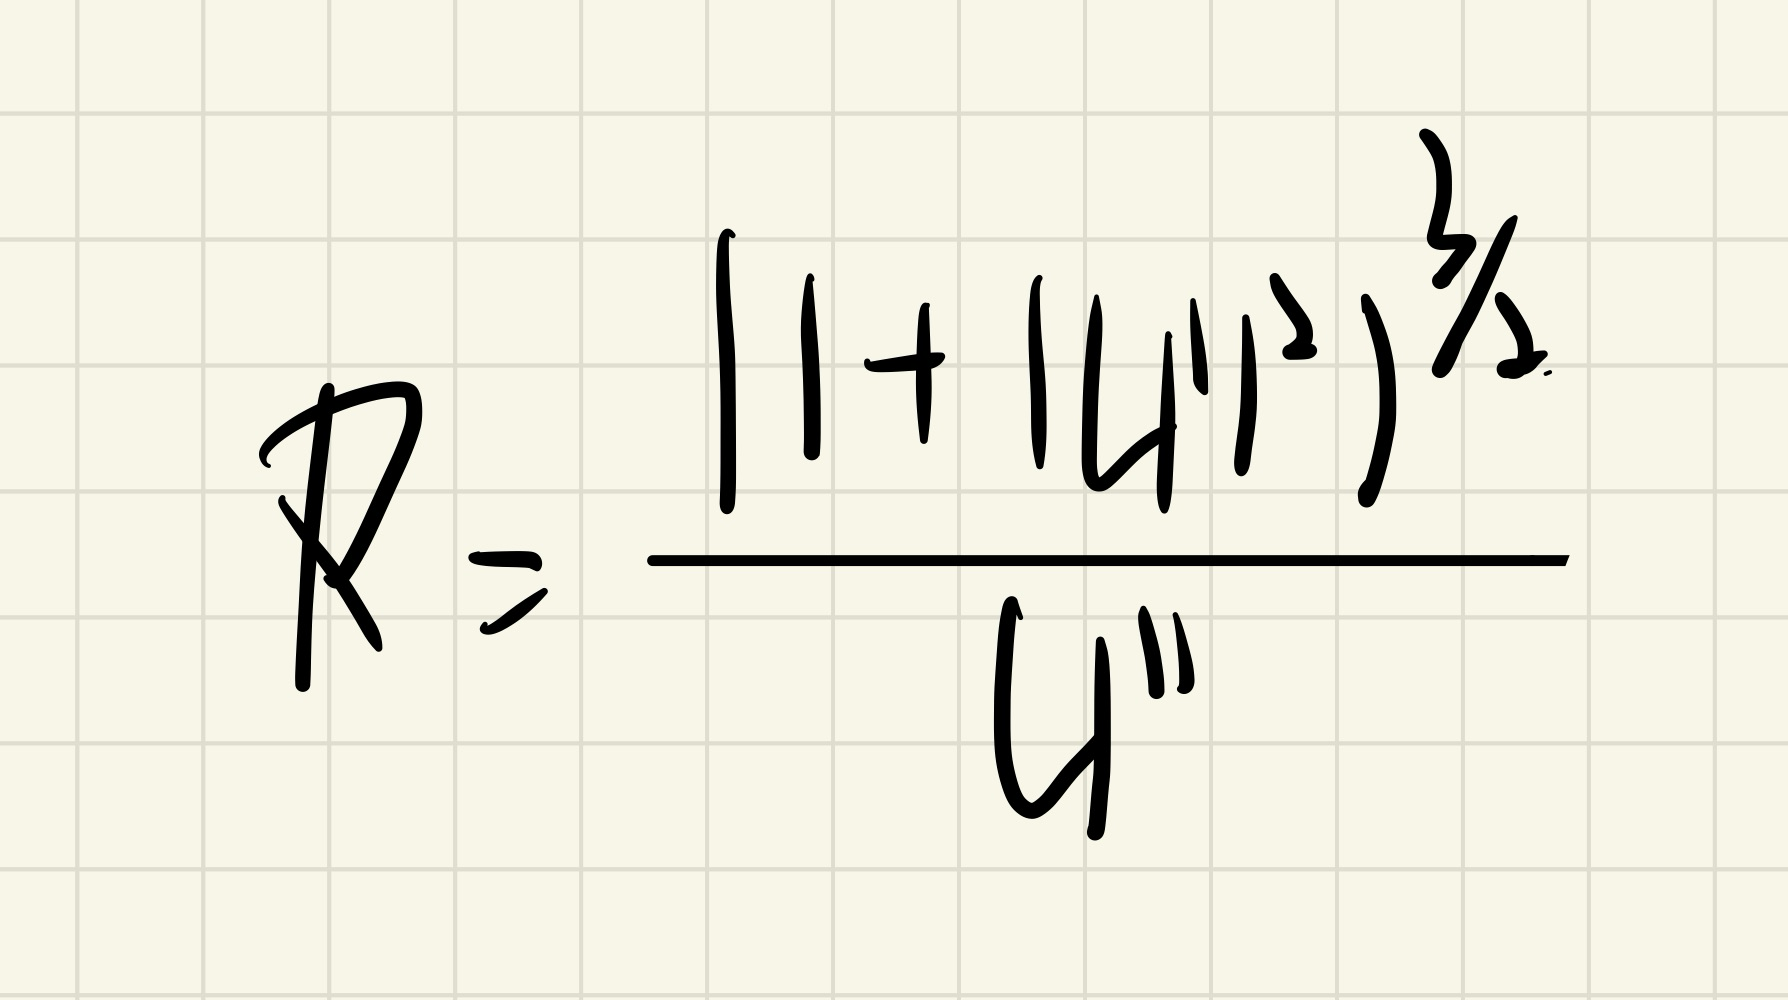 R = (1 + (y')²)^{3/2} / y''